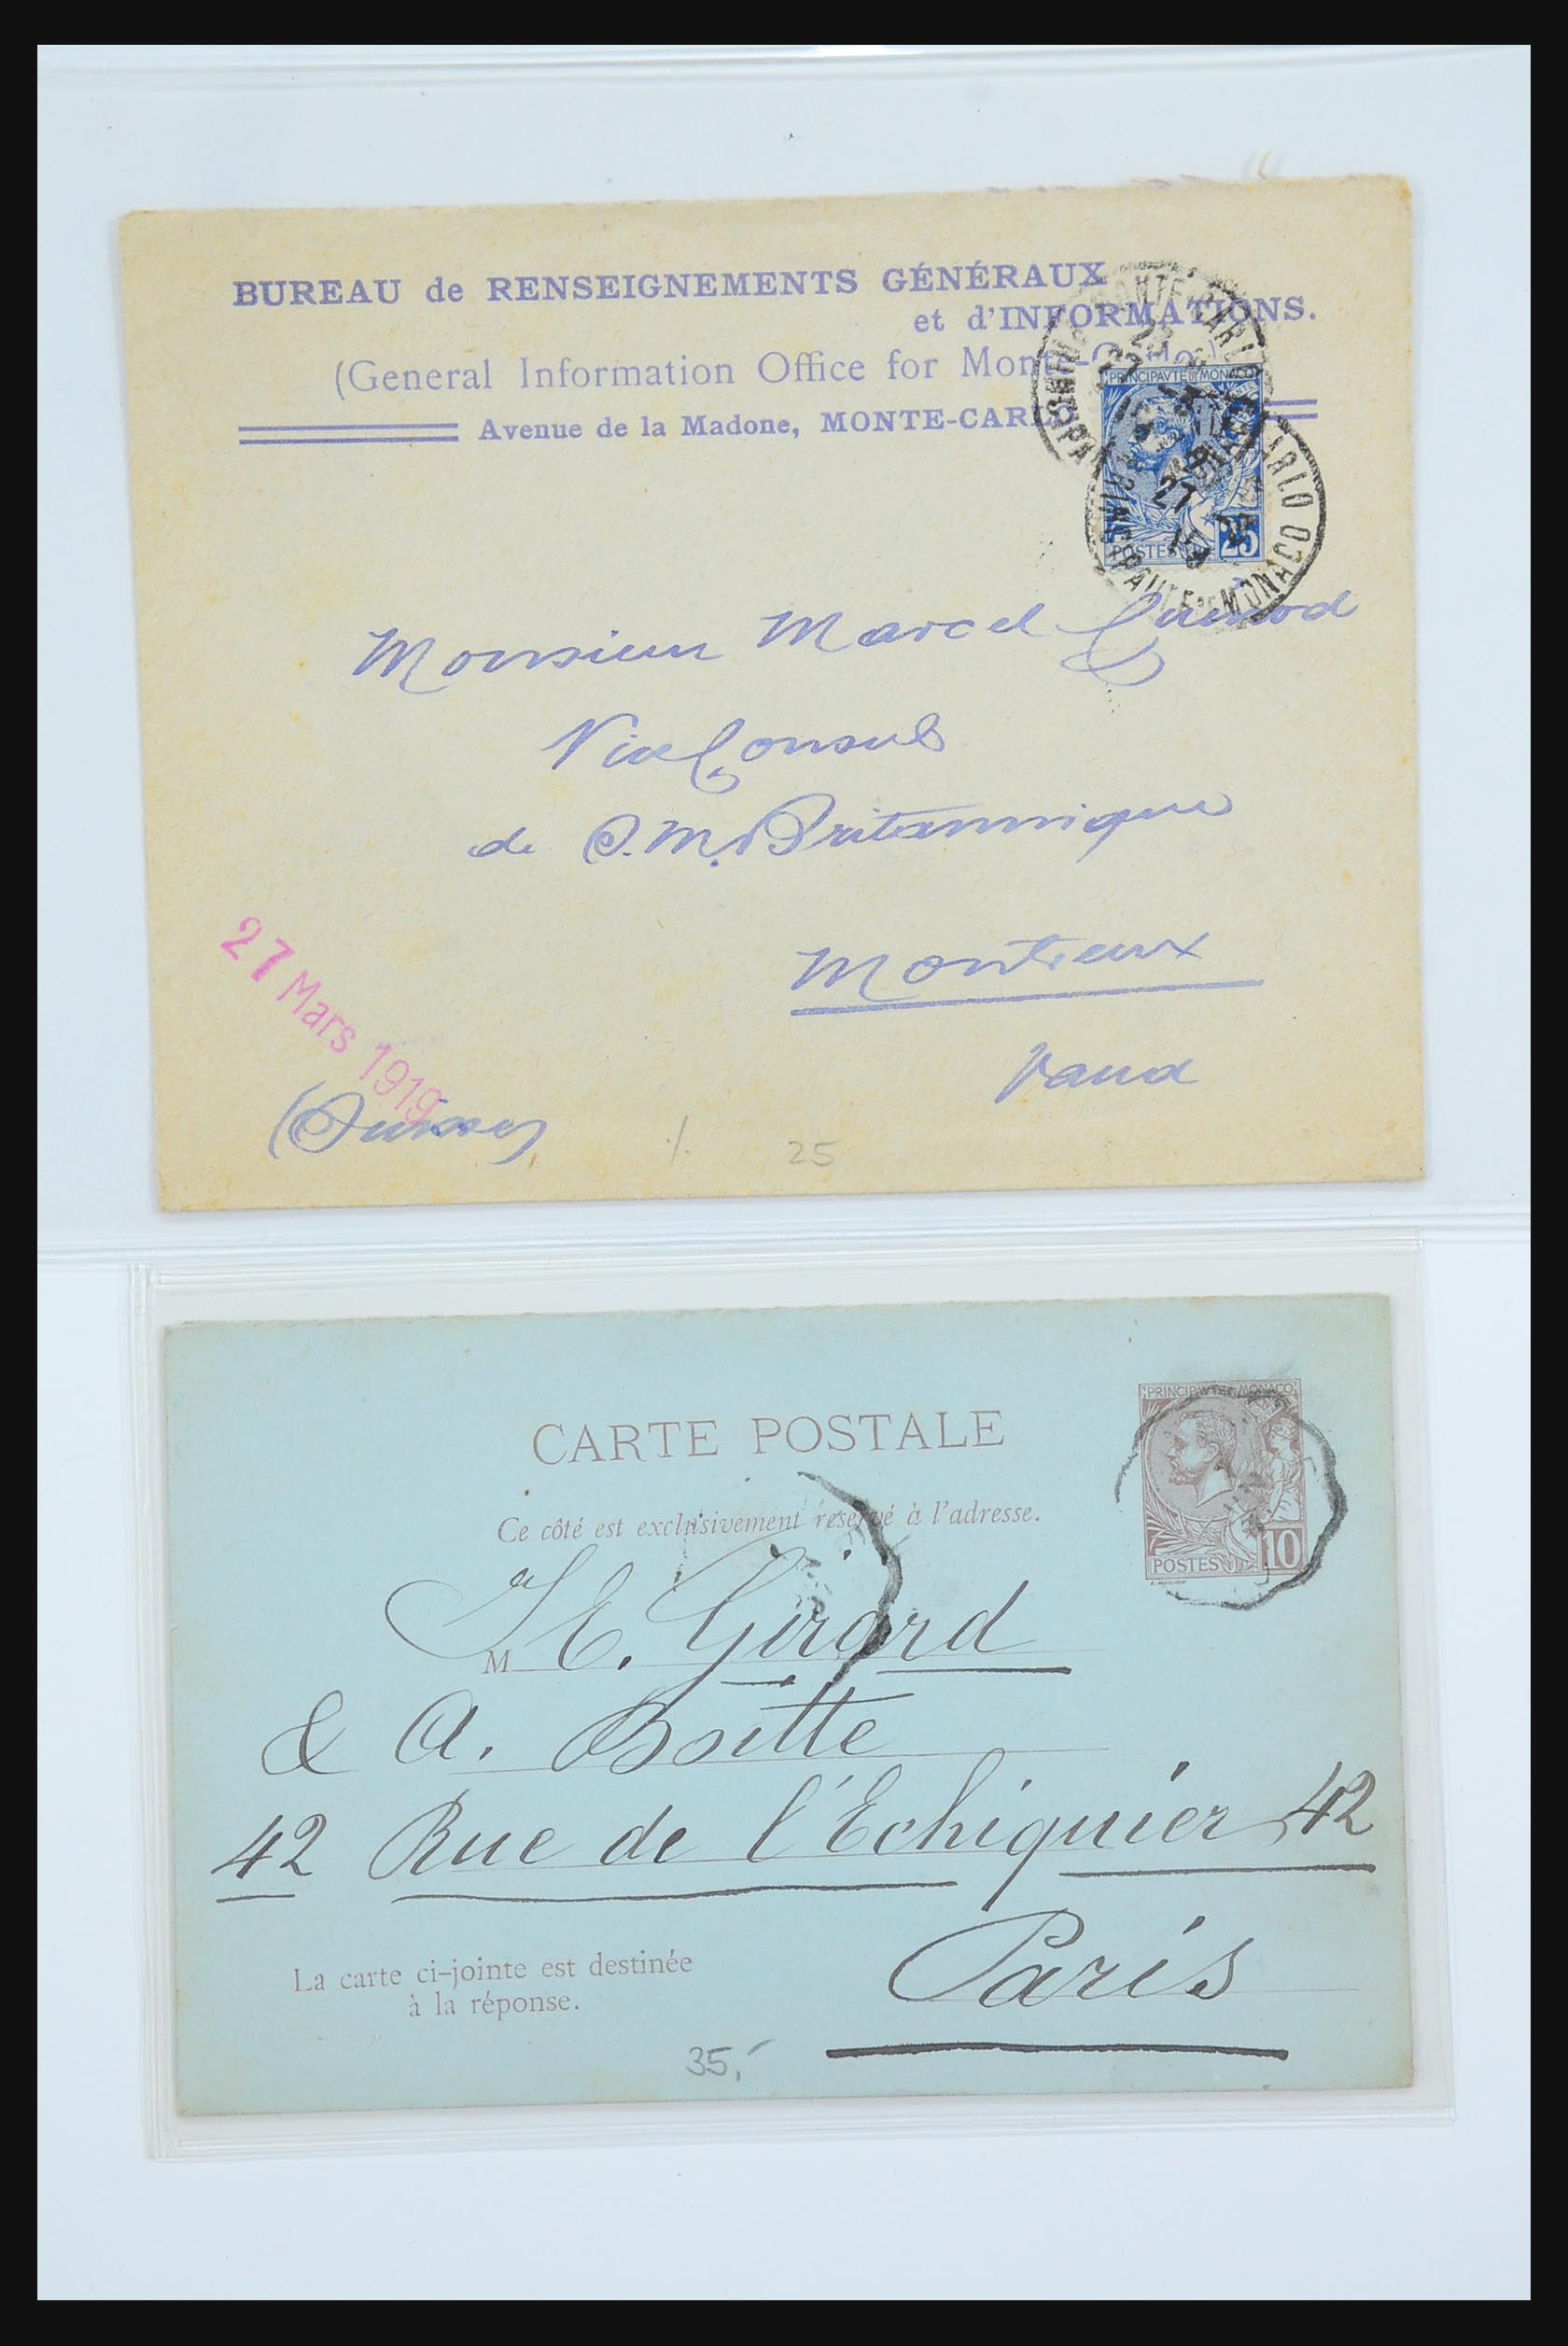 BUREAU de RENSEIGNEMENTS GÉNÉRAUX
et d'INFORMATIONS.
(General Information Office for Monte-Carlo.)
Avenue de la Madone, MONTE-CARLO
PRINCIPAUTÉ DE MONACO
POSTES 25
MONTE-CARLO
PRINCIPAUTÉ DE MONACO
27
19
Monsieur Marcel
Vice Consul
de S.M. Britannique
Montreux
Vaud
27 Mars 1919
(Suisse)
/. 25
PRINCIPAUTÉ DE MONACO
POSTES 10
CARTE POSTALE
Ce côté est exclusivement réservé à l'adresse.
M E. Girard
& A. Boitte
42 Rue de l'Echiquier 42
Paris
La carte ci-jointe est destinée
à la réponse.
35,-